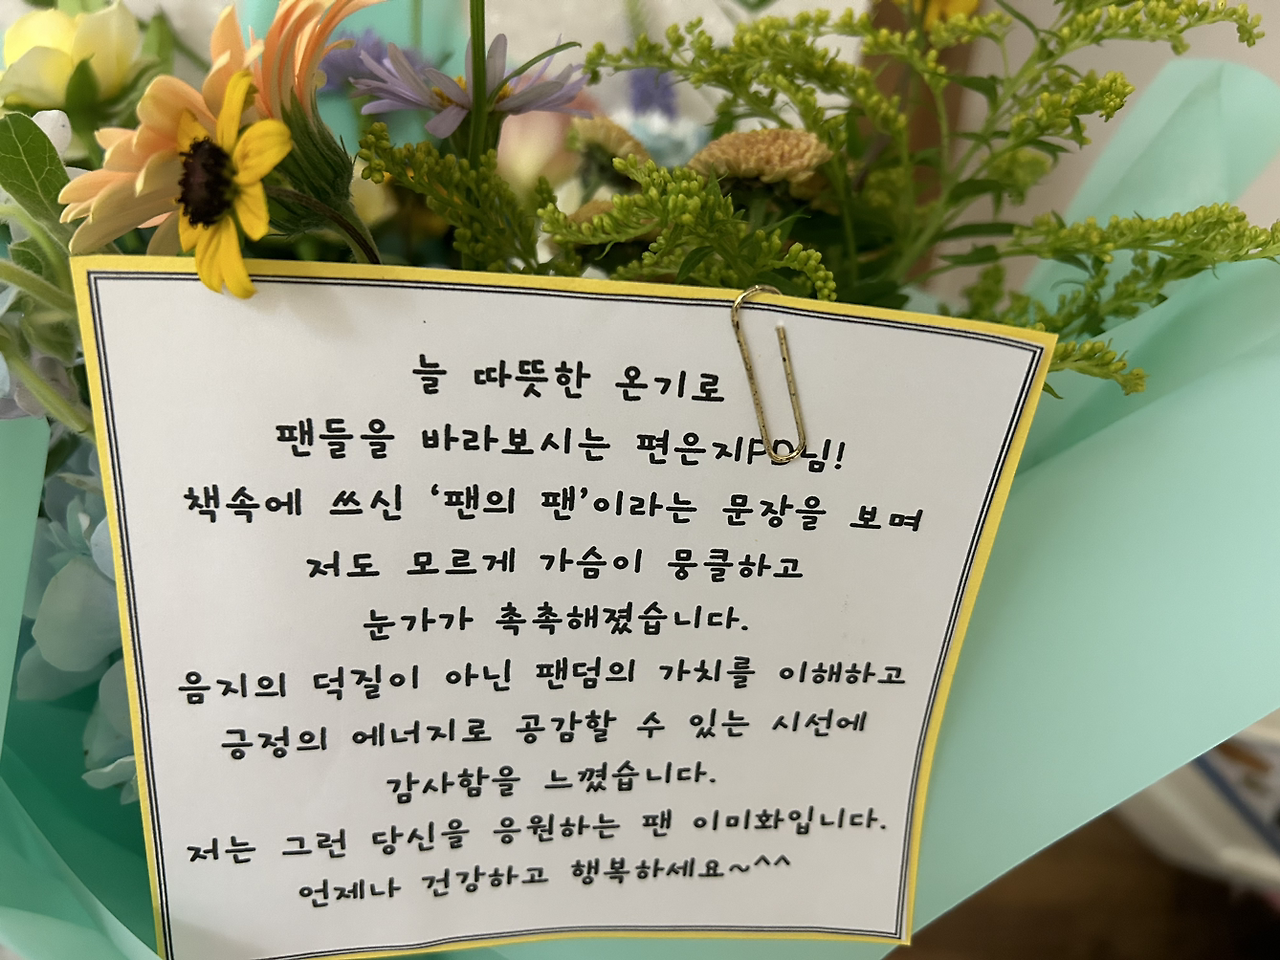 늘 따뜻한 온기로
팬들을 바라보시는 편은지PD님!
책속에 쓰신 ‘팬의 팬’이라는 문장을 보며
저도 모르게 가슴이 뭉클하고
눈가가 촉촉해졌습니다.
음지의 덕질이 아닌 팬덤의 가치를 이해하고
긍정의 에너지로 공감할 수 있는 시선에
감사함을 느꼈습니다.
저는 그런 당신을 응원하는 팬 이미화입니다.
언제나 건강하고 행복하세요~^^